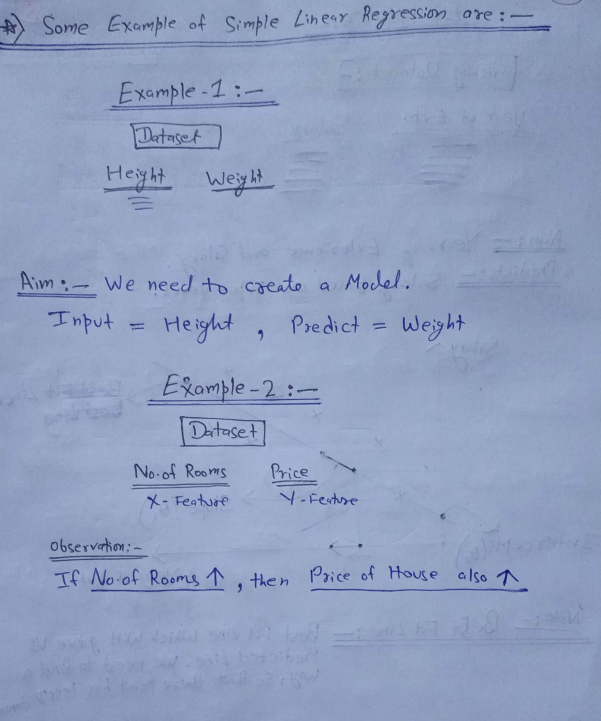 ☆) Some Example of Simple Linear Regression are :-
Example-1 :-
Dataset
Height Weight
Aim :- We need to create a Model.
Input = Height , Predict = Weight
Example-2 :-
Dataset
No. of Rooms Price
X-Feature Y-Feature
Observation:-
If No. of Rooms ↑ , then Price of House also ↑